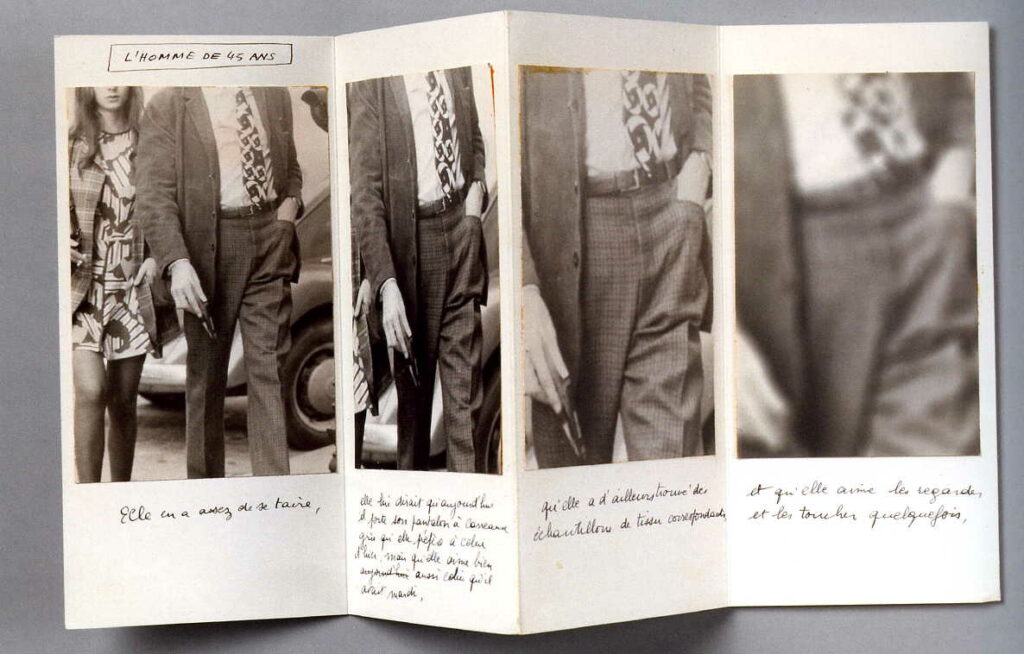 L'HOMME DE 45 ANS
Elle en a assez de se taire,
elle lui dirait qu'aujourd'hui
il porte son pantalon à carreaux
gris qu'elle préfère à celui
d'hier, mais qu'elle aime bien
aujourd'hui aussi celui qu'il
avait mardi,
qu'elle a d'ailleurs trouvé des
échantillons de tissu correspondants
et qu'elle aime les regarder,
et les toucher quelquefois,